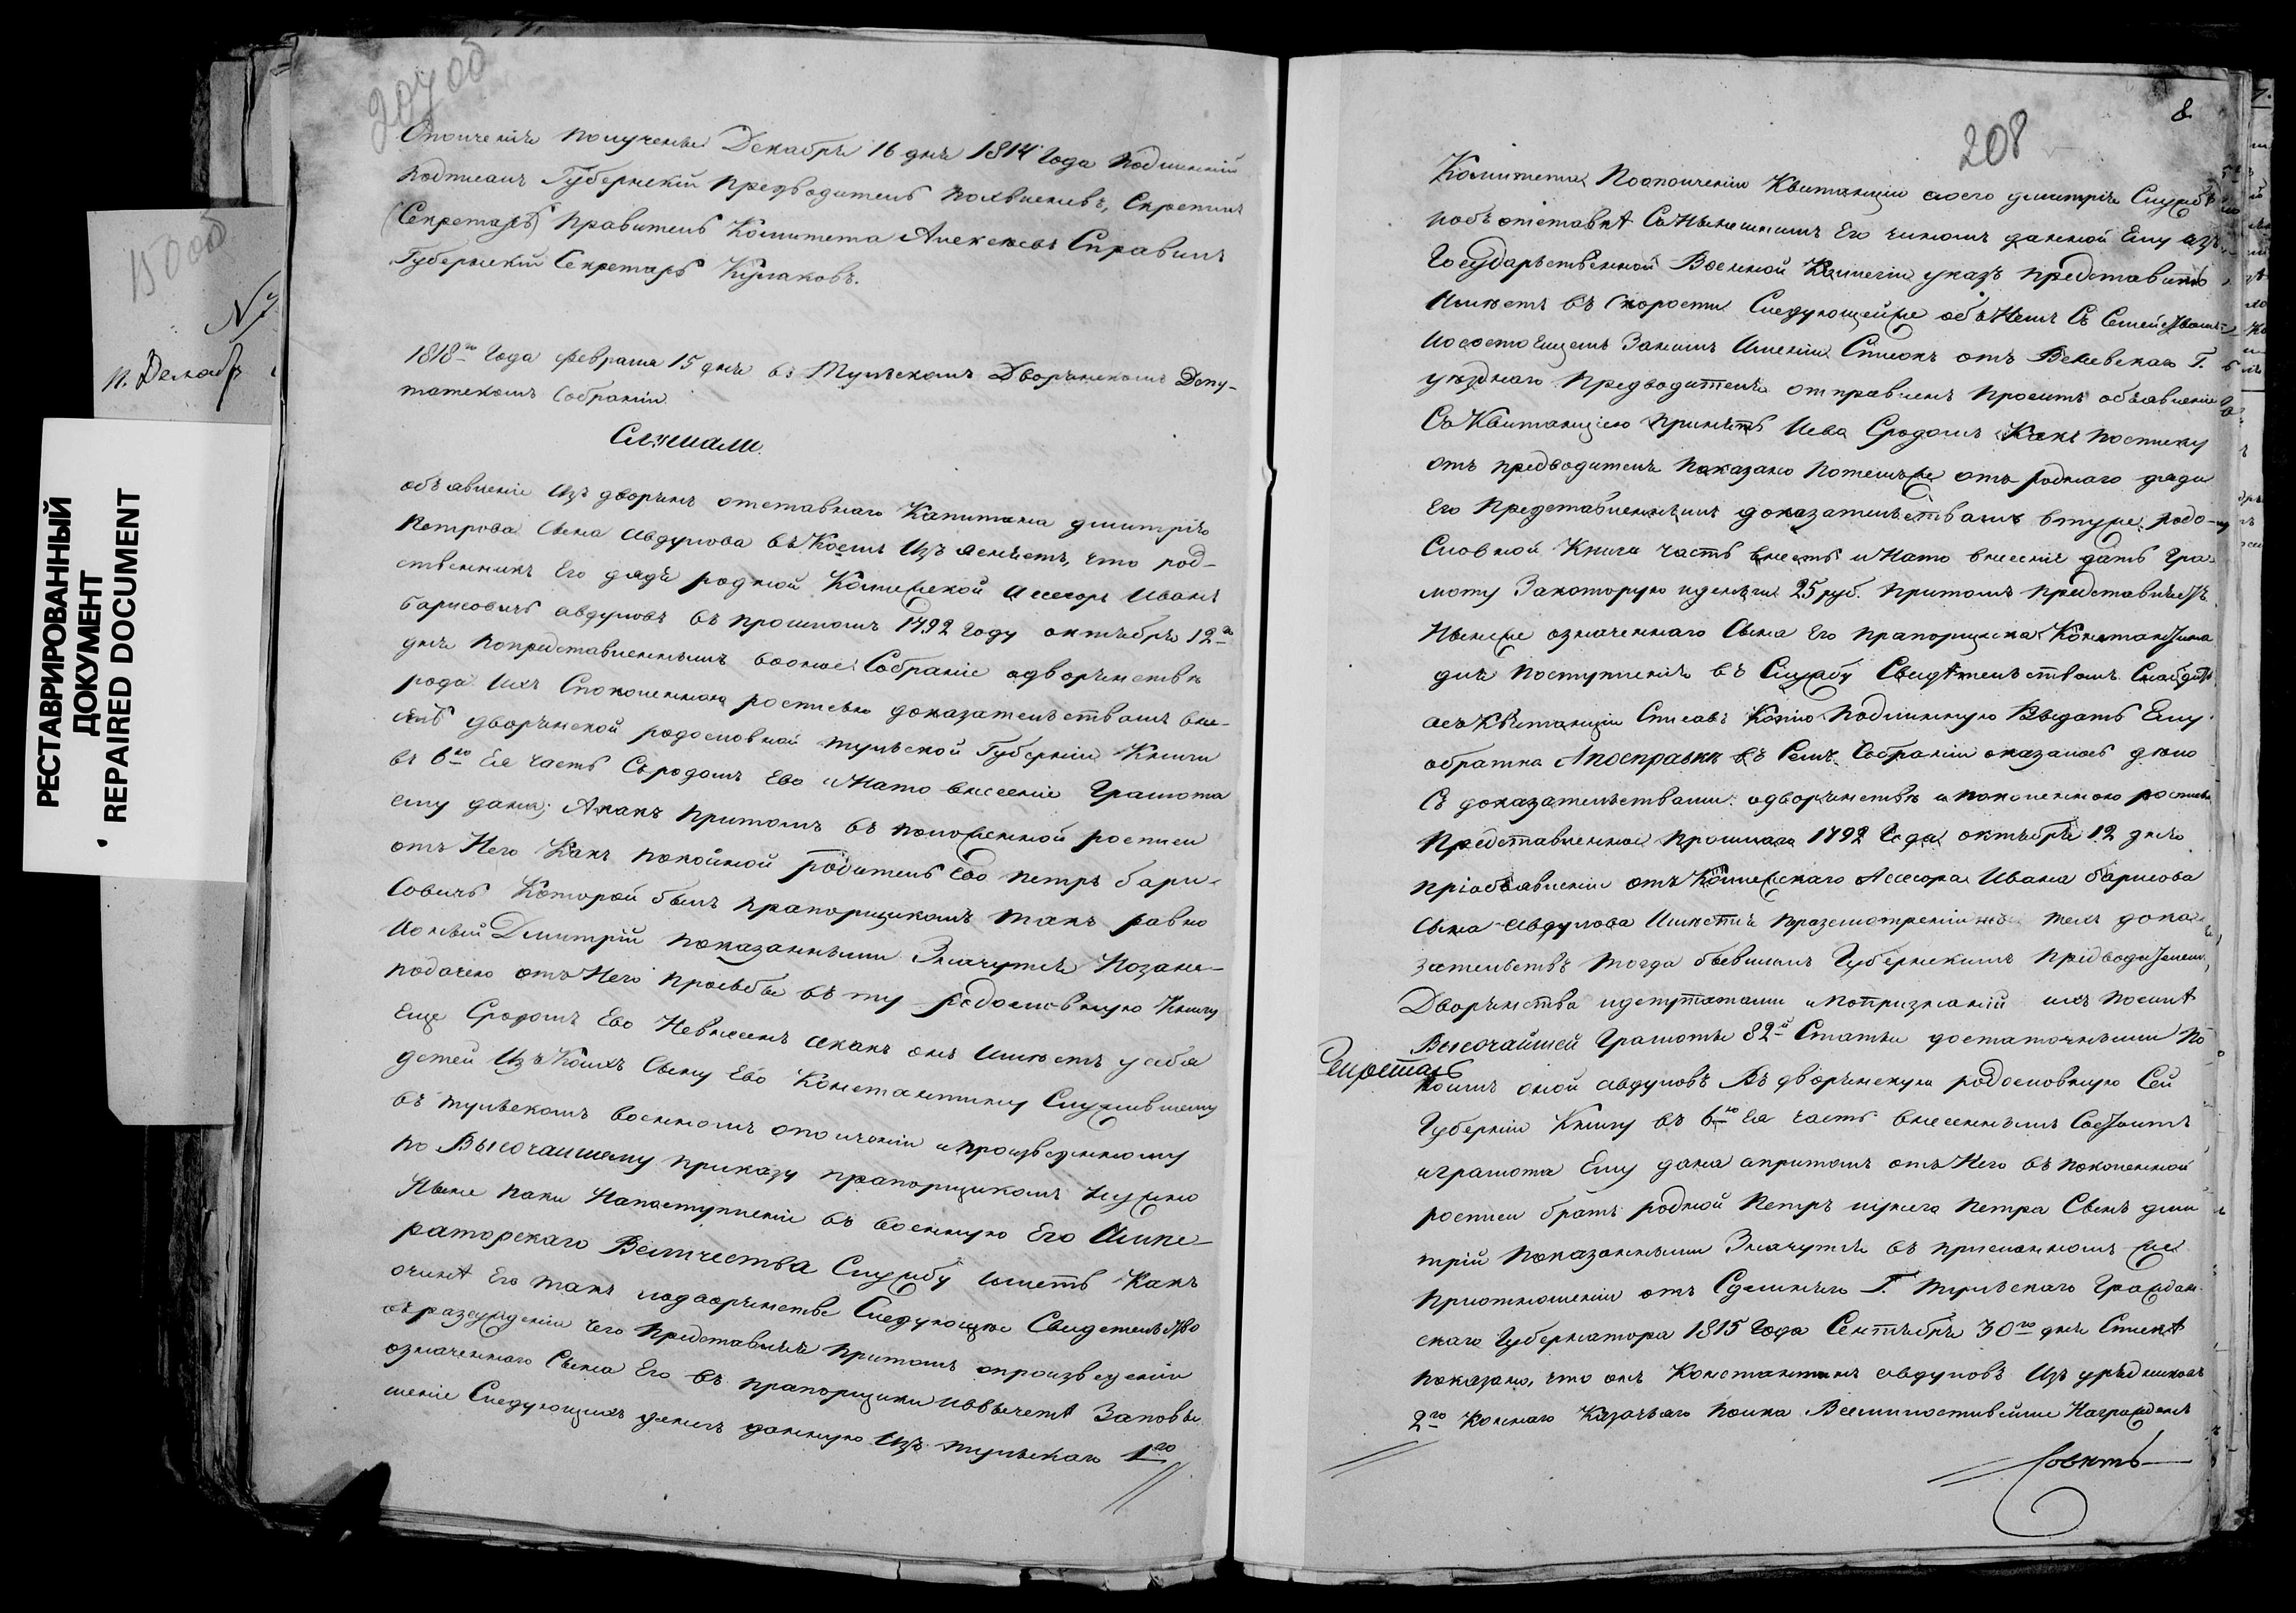 207 об
Ополченія получены Декабря 16 дня 1814 Года подлинній
подписалъ Губернскій предводитель похвисневъ, Скрепилъ
(Секретарь) правитель Комитета Алексѣевъ Справилъ
Губернскій Секретарь Кулаковъ.
1818го Года февраля 15 дня въ Тульскомъ Дворянскомъ Депу-
татскомъ Собраніи
Слушали
объявленіе Изъ дворянъ отставнаго Капитана дмитрія
Петрова Сына Авдулова въ Коемъ Изъясняетъ, что род-
ственникъ Его дядя родной Колежской Асесоръ Иванъ
барисовичь авдуловъ въ прошломъ 1792 Году октября 12го
дня попредставленнымъ вооное Собраніе одворянствѣ
рода Ихъ Споколенною росписью доказательствамъ вне-
сенъ дворянской родословной тульской Губерніи Книги
въ 6ю Ея часть Сродомъ Ево иНато внесеніе Грамота
ему дана; Акакъ притомъ въ поколенной росписи
отъ Него Какъ покойной родитель Ево петръ бари-
совичь Которой былъ прапорщикомъ такъ равно
Ионъй Дмитрій показанными Значутся Нозане-
подачею отъ Него прозьбы въ ту родословную Книгу
Еще Сродомъ Ево Невнесенъ акакъ онъ Имѣетъ усебя
детей Изъ Коихъ Сыну Ево Константину Служившему
въ тульскомъ военномъ ополченіи ипроизведенному
по Высочаишему приказу прапорщикомъ Нужно
Ныне паки Напоступленіи въ военную Его Импе-
раторскаго Величества Службу иметь Какъ
очинѣ Его такъ иодворянстве Следующее Свидетельство
вразсужденіи чего представляя притомъ опроизведеніи
означеннаго Сына Его въ прапорщики ивычетѣ Заповы-
шеніе Следующихъ денегъ данную Изъ тульскаго 1го
8
208
Комитета Поополченію Квитанцію асвого дмитрія Службѣ
иобъотставкѣ СъНынешнимъ Его чиномъ данной Ему изъ
Государственной Военной Колегіи указъ представить
Имѣетъ въ Скорости Следующейже объ Немъ Съ Семействомъ
Иосостоящемъ Занимъ Именіи Списокъ отъ Веневскаго Г.
уѣзднаго Предводителя отправленъ проситъ объявленіе
СъКвитанціею принять Иево Сродомъ Какъ посписку
отъ предводителя показано потемъже отъ роднаго дяди
Его Представленнымъ доказательствамъ втуже родо-
Словной Книги часть внесть иНато внесеніе дать Гра-
моту Закоторую иденги 25 руб. притомъ представляетъ
Нынеже означеннаго Сына Его прапорщика Константина
для поступленія въ Службу Свидѣтельствомъ Снабдить
асъКвитанціи Списавъ Копію подлинную Выдать Ему
обратна Апосправкѣ въ Семъ Собраніи оказалось дело
Съ доказательствами одворянствѣ и поколенною росписью
Представленное прошлаго 1792 Года октября 12 дня
пріобъявленіи отъ Колежскаго Асесора Ивана барисова
Сына Авдулова Имѣется поразсмотреніи техъ дока-
зательствъ тогда бывшимъ Губернскимъ предводителемъ
Дворянства идепутатами ипопризнаніи ихъ посилѣ
Высочайшей Грамоты 82й Статьи достаточными по
Секретарь
коимъ оной авдуловъ Въ дворянскую родословную Сей
Губерніи Книгу въ 6ю Ея часть внесеннымъ Состоитъ
играмота Ему дана апритомъ отъ Него въ поколенной
росписи братъ родной Петръ иунего петра Сынъ дми
трій показанными Значутся въ присланномъ же
приотношеніи отъ Сдешняго Г. тульскаго Граждан-
скаго Губернатора 1815 Года Сентября 30го дня Спискѣ
показано, что онъ Константинъ авдуловъ Изъ урядниковъ
2го Коннаго Казачьаго полка Всемилостивейше Награжденъ
Совѣтъ
150 об
№
п. Декабр
РЕСТАВРИРОВАННЫЙ
ДОКУМЕНТ
REPAIRED DOCUMENT